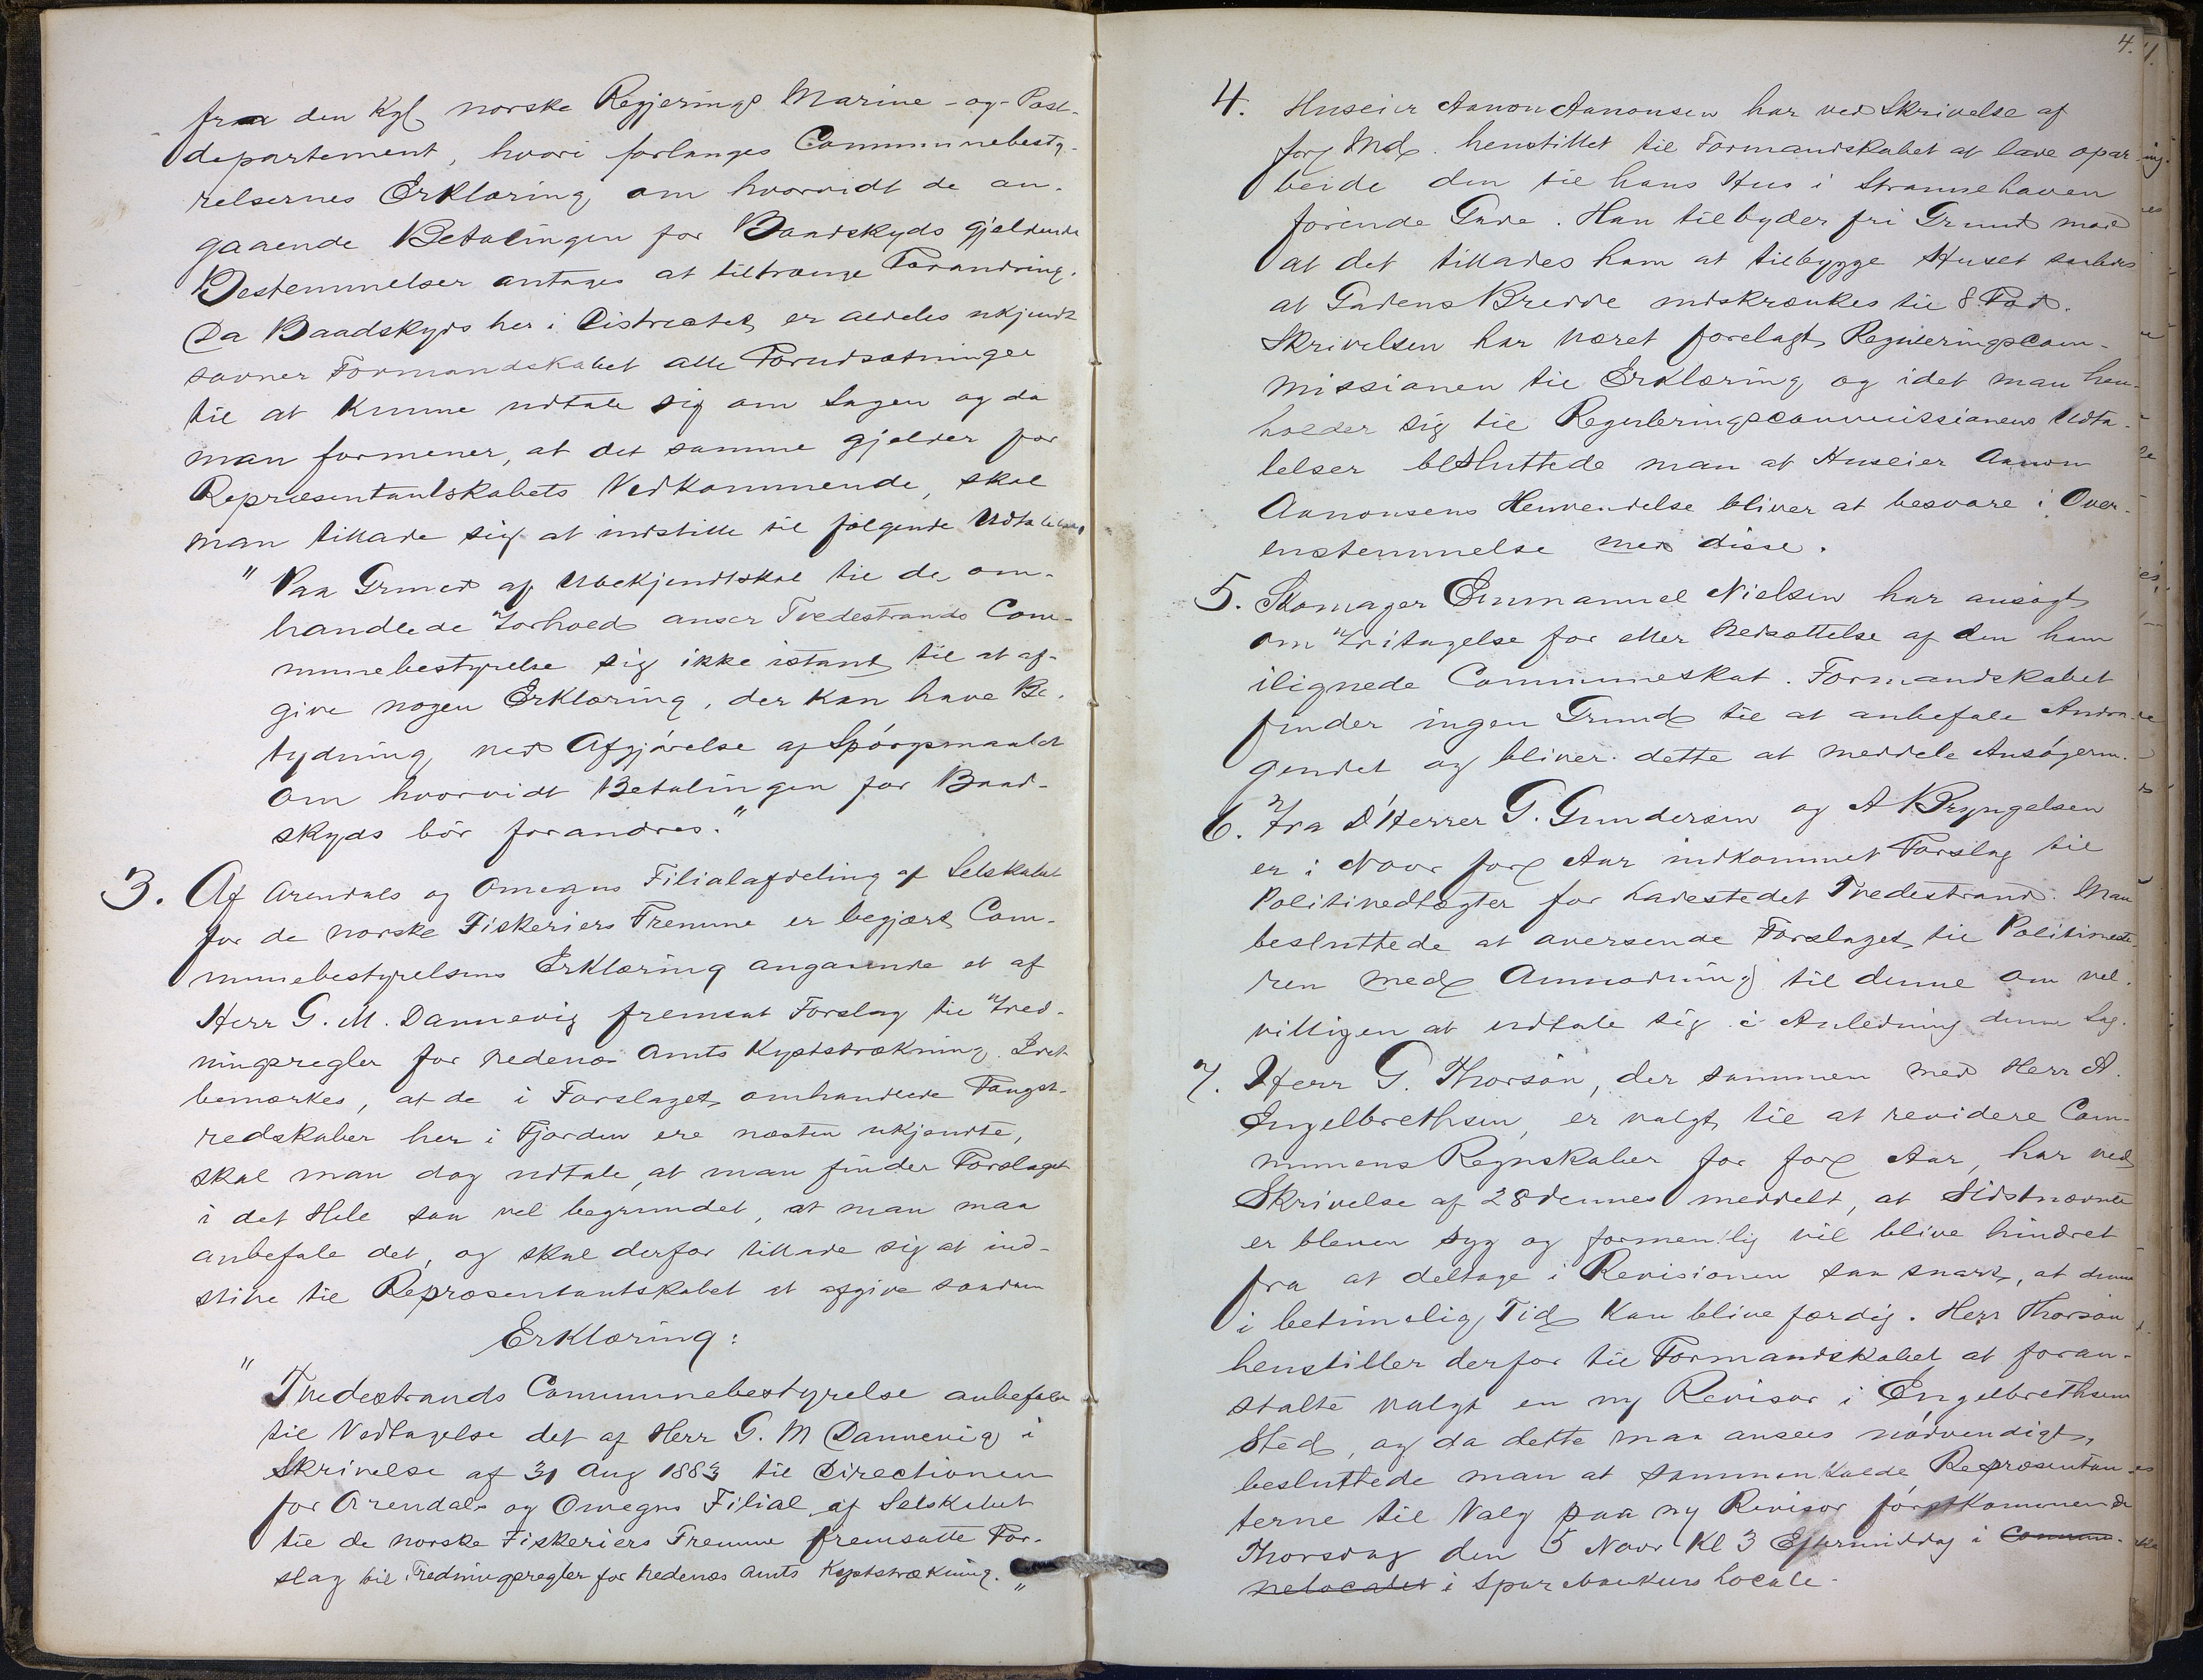 fra den Kgl norske Regjerings Marine-og-Post-
departement, hvori forlanges Communebesty-
relsernes Erklæring om hvorvidt de an-
gaaende Betalingen for Baadskyds gjeldende
Bestemmelser antages at tiltrænge Forandring.
Da Baadskyds her i Districtet er aldeles ukjendt
savner Formandskabet alle Forudsætninger
til at kunne udtale sig om Sagen og da
man formener, at det samme gjelder for
Repræsentantskabets Vedkommende, skal
man tillade sig at indstille til følgende Udtalelse,
" Paa Grund af Ubekjendtskab til de om-
handlede Forhold anser Tvedestrands Com-
munebestyrelse sig ikke istand til at af-
give nogen Erklæring, der kan have Be-
tydning ved Afgjørelse af Spørgsmaalet
om hvorvidt Betalingen for Baad-
skyds bør forandres."
3. Af Arendals og Omegns Filialafdeling af Selskabet
for de norske Fiskeriers Fremme er begjært Com-
munebestyrelsens Erklæring angaaende et af
Herr G. M. Dannevig fremsat Forslag til Fred-
ningsregler for Nedenæs Amts Kyststrækning. Idet
bemærkes, at de i Forslaget omhandlede Fangst-
redskaber her i Fjorden ere næsten ukjendte,
skal man dog udtale, at man finder Forslaget
i det Hele saa vel begrundet, at man maa
anbefale det, og skal derfor tillade sig at ind-
stille til Repræsentantskabet at afgive saadan
Erklæring:
" Tvedestrands Communebestyrelse anbefaler
til Vedtagelse det af Herr G. M Dannevig i
Skrivelse af 31 Aug 1883 til Directionen
for Arendals og Omegns Filial af Selskabet
til de norske Fiskeriers Fremme fremsatte For-
slag til Fredningsregler for Nedenæs Amts Kyststrækning. "
4.
4. Huseier Aanon Aanonsen har ved Skrivelse af
forg Md. henstillet til Formandskabet at lade opar-
beide den til hans Hus i Strannehaven
førende Gade. Han tilbyder fri Grund mod
at det tillades ham at tilbygge Huset saaledes
at Gadens Bredde indskrænkes til 8 Fod.
Skrivelsen har været forelagt Reguleringscom-
missionen til Erklæring og idet man hen-
holder sig til Reguleringscommissionens Udta-
lelser besluttede man at Huseier Aanon
Aanonsens Henvendelse bliver at besvare i Over-
enstemmelse med disse.
5. Skomager Emmanuel Nielsen har ansøgt
om Fritagelse for eller Nedsættelse af den ham
ilignede Communeskat. Formandskabet
finder ingen Grund til at anbefale Andra-
gendet og bliver dette at meddele Ansøgeren.
6. Fra D'Herrer G. Gundersen og A Bryngelsen
er i Novr forg Aar indkommet Forslag til
Politivedtægter for Ladestedet Tvedestrand. Man
besluttede at oversende Forslaget til Politimeste-
ren med Anmodning til denne om vel-
villigen at udtale sig i Anledning denne Sag.
7. Herr G. Thorsøn, der sammen med Herr A.
Engelbrethsen er valgt til at revidere Com-
munens Regnskaber for forg Aar, har ved
Skrivelse af 28 dennes meddelt, at Sidstnævnte
er bleven syg og formentlig vil blive hindret
fra at deltage i Revisionen saa snart, at denne
i betimelig Tid kan blive færdig. Herr Thorsøn
henstiller derfor til Formandskabet at foran-
stalte valgt en ny Revisor i Engelbrethsens
Sted, og da dette maa ansees nødvendigt,
besluttede man at sammenkalde Repræsentan-
terne til Valg paa ny Revisor førstkommende
Thorsdag den 5 Novr Kl 3 Eftermiddag i Commu-
nelocalet i Sparebankens Locale.